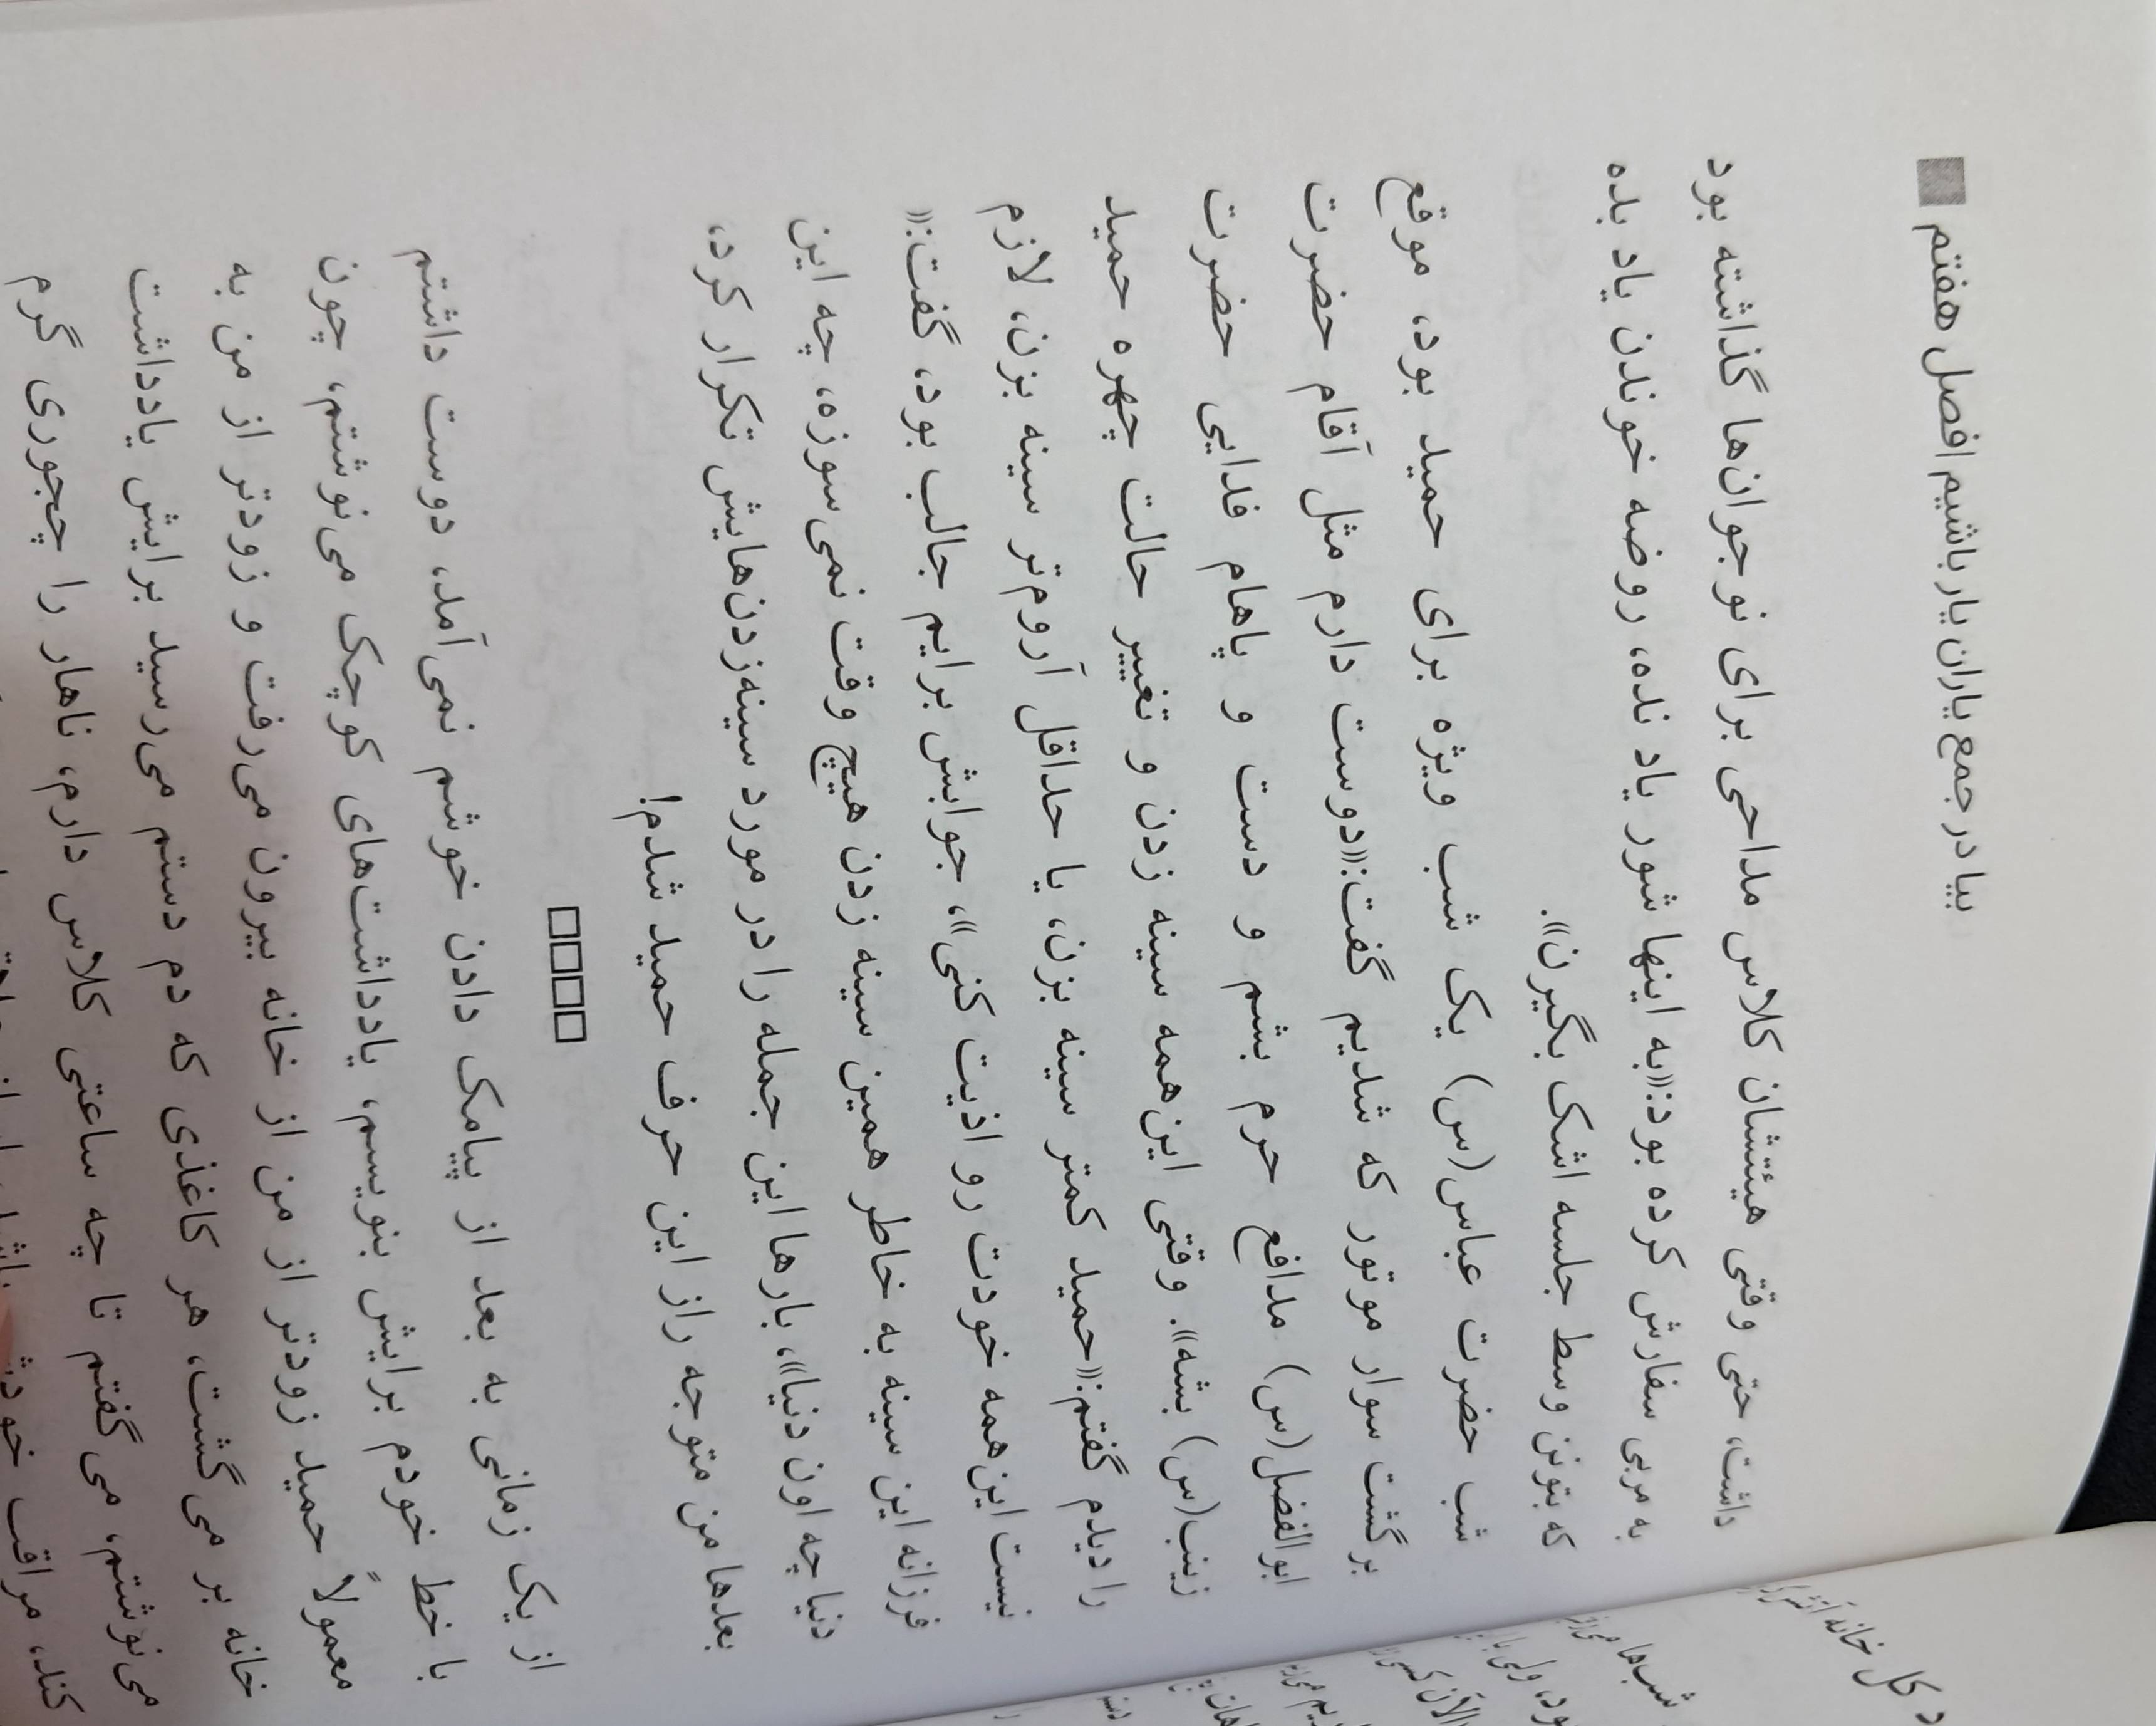 بیا در جمع یاران یار باشیم | فصل هفتم
داشت، حتی وقتی هیئتشان کلاس مداحی برای نوجوان‌ها گذاشته بود
به مربی سفارش کرده بود:«به اینها شور یاد نده، روضه خوندن یاد بده
که بتونن وسط جلسه اشک بگیرن».
شب حضرت عباس(س) یک شب ویژه برای حمید بود، موقع
برگشت سوار موتور که شدیم گفت:«دوست دارم مثل آقام حضرت
ابوالفضل(س) مدافع حرم بشم و دست و پاهام فدایی حضرت
زینب(س) بشه». وقتی این‌همه سینه زدن و تغییر حالت چهره حمید
را دیدم گفتم:«حمید کمتر سینه بزن، یا حداقل آروم‌تر سینه بزن، لازم
نیست این‌همه خودت رو اذیت کنی»، جوابش برایم جالب بود، گفت:«
فرزانه این سینه به خاطر همین سینه زدن هیچ وقت نمی‌سوزه، چه این
دنیا چه اون دنیا»، بارها این جمله را در مورد سینه‌زدن‌هایش تکرار کرد،
بعدها من متوجه راز این حرف حمید شدم!
□□□□
از یک زمانی به بعد از پیامک دادن خوشم نمی‌آمد، دوست داشتم
با خط خودم برایش بنویسم، یادداشت‌های کوچک می‌نوشتم، چون
معمولاً حمید زودتر از من از خانه بیرون می‌رفت و زودتر از من به
خانه بر می‌گشت، هر کاغذی که دم دستم می‌رسید برایش یادداشت
می‌نوشتم، می‌گفتم تا چه ساعتی کلاس دارم، ناهار را چجوری گرم
کند، مراقب
د کل خانه
شب‌ها